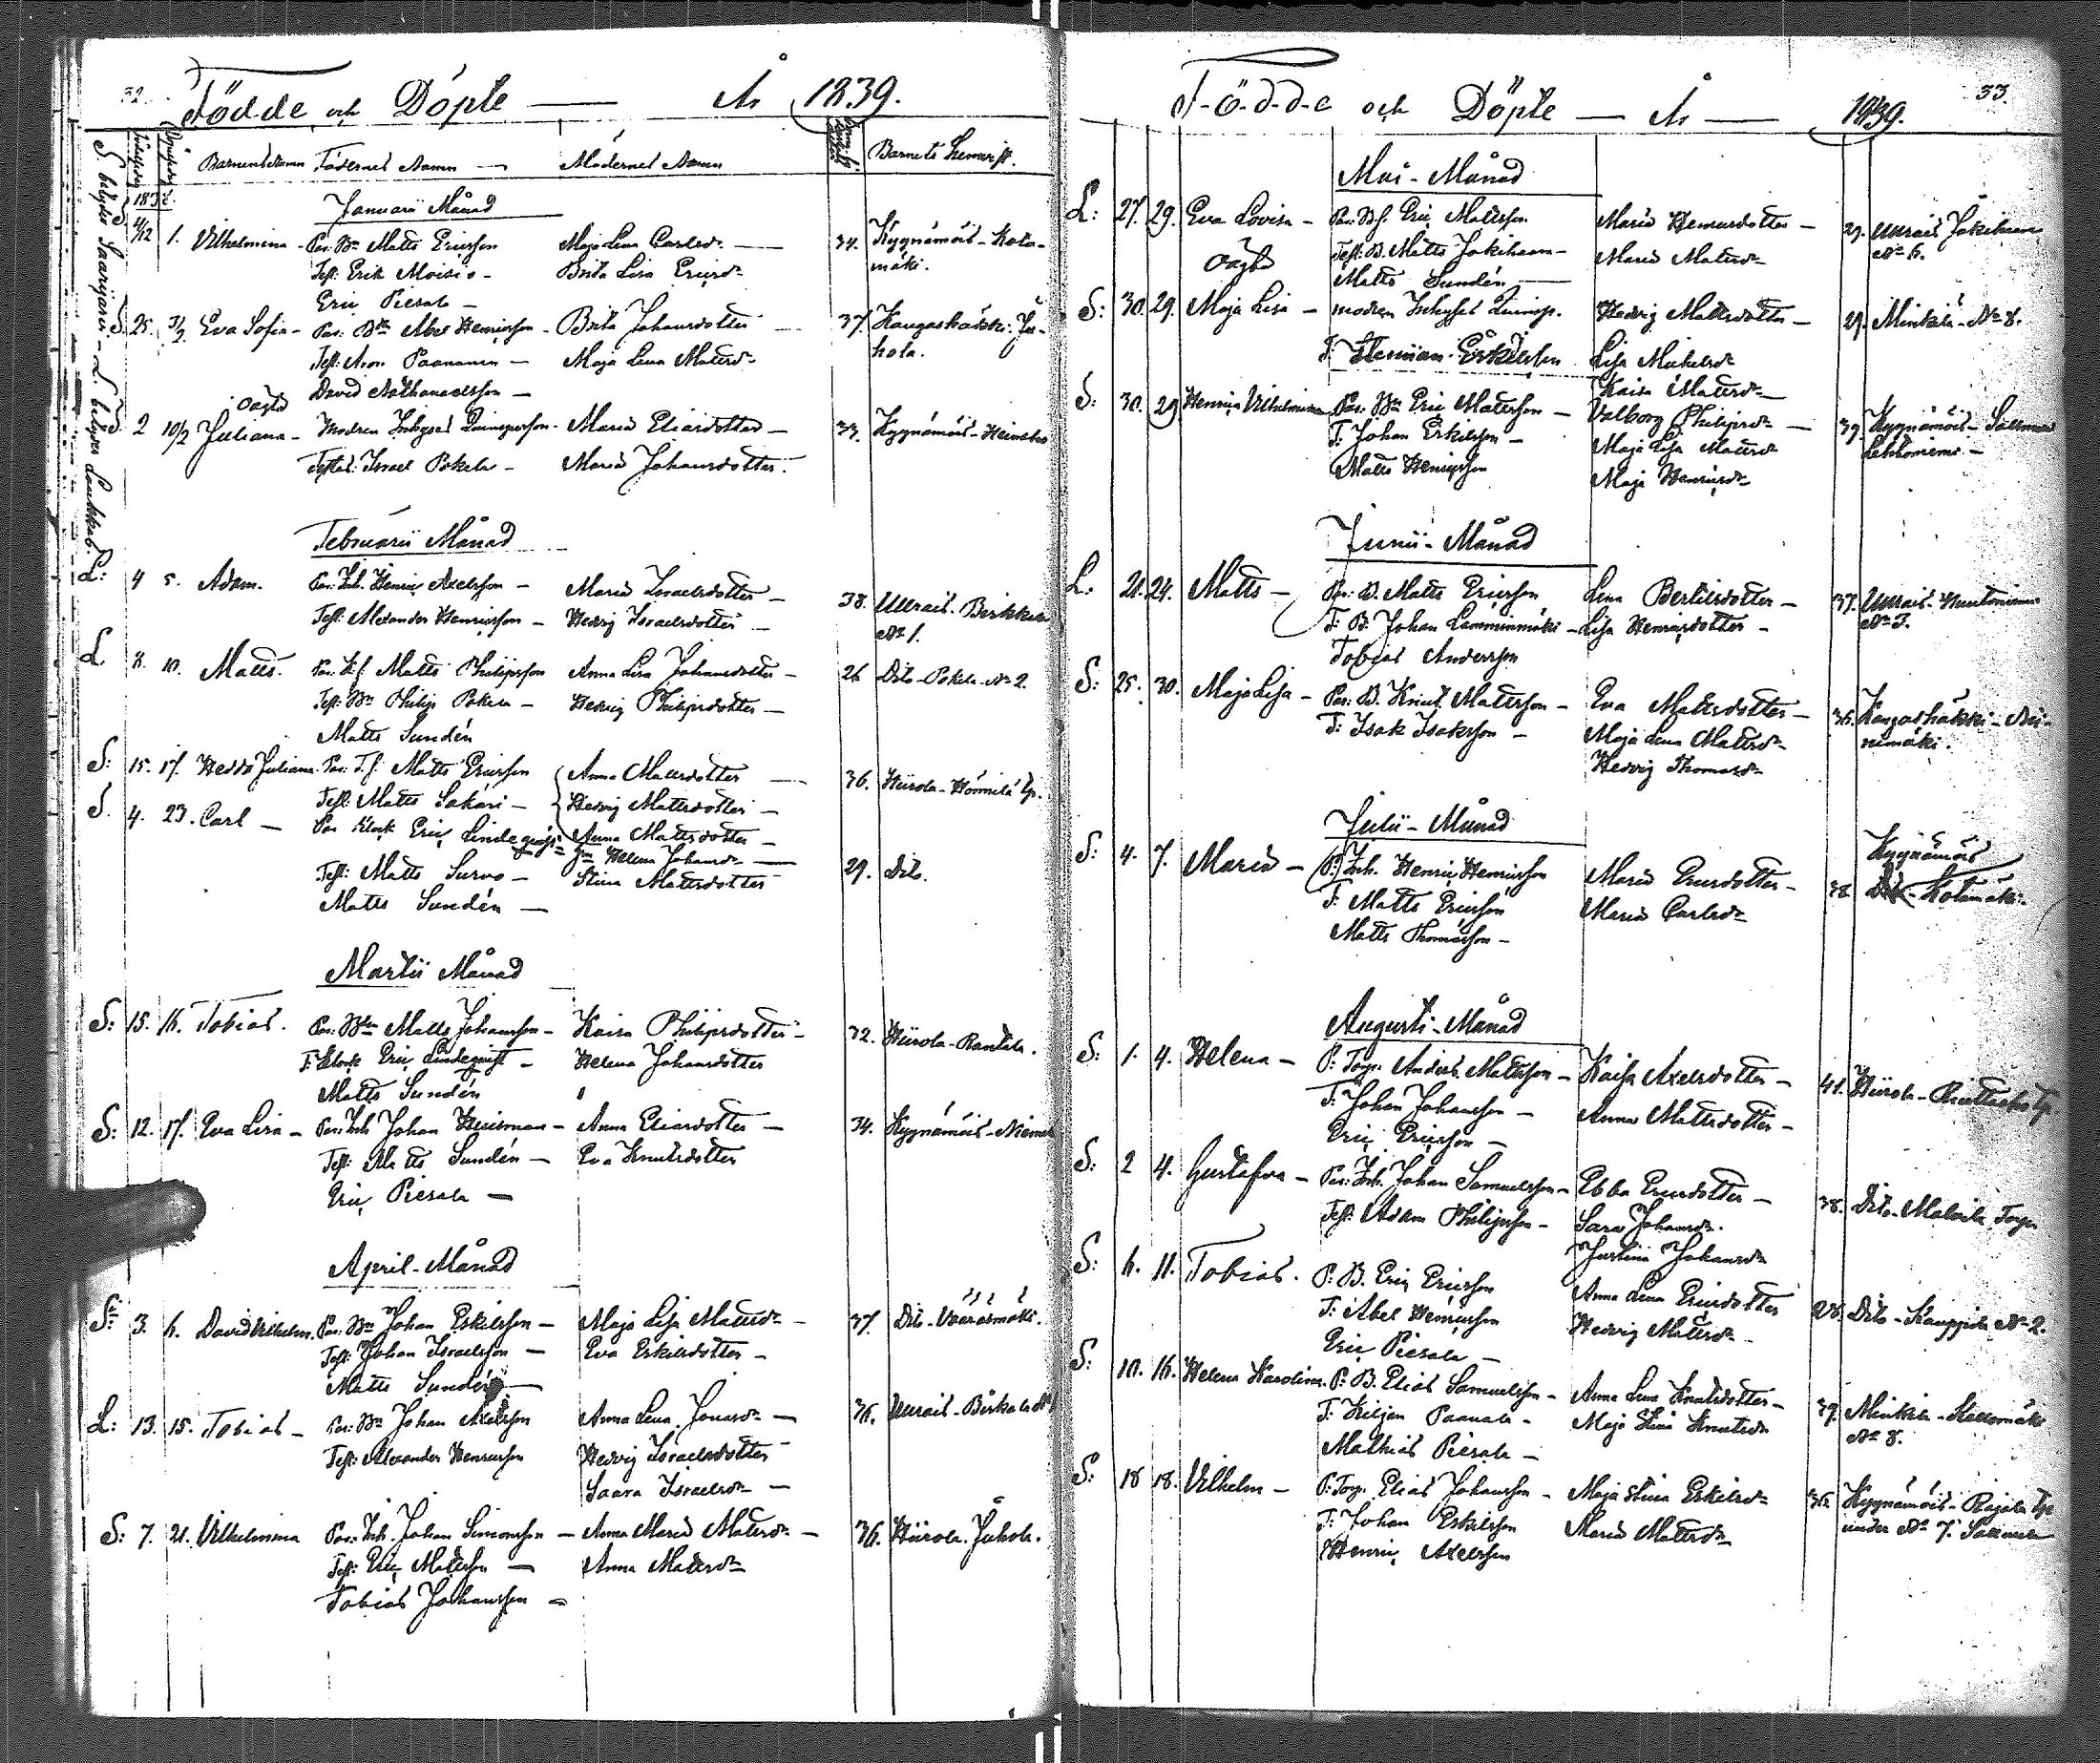 32.
Födde och Döpte — År 1839.
S. betyder Saarijärvi — L. betyder Loukkas
Barnens Namn Fädernes Namn — Mödernes Namn Barnets hemvist.
1838.
Januarii Månad
S 11/12 1. Vilhelmina — Par. Bn Matts Ericsson Maja Lena Carlsdr — 34. Kygnämäis — Kota-
Test: Erik Moisio — Brita Lisa Ericsdr mäki.
Eric Piesala —
S 25. 3/2 Eva Sofia — Par. Bn Abel Henricsson — Brita Johansdotter — 37. Kangashäkki: Ju-
Test: Aron Paananen — Maja Lena Mattsdr hola.
David Nathanaelsson —
oägta
S 2 10/2 Juliana — Modren Inhyses Qvinsperson — Maria Eliasdotter — 33. Kygnämäis — Heinaho
Test: Israel Pokela — Maria Johansdotter.
Februarii Månad
L: 4 5. Adam. Par. Inh. Henric Axelsson — Maria Israelsdotter — 38. Uurais. Birkkala
Test: Alexander Henricsson — Hedvig Israelsdotter — No 1.
L. 8. 10. Matts. Par. Matts Philipsson Anna Lisa Johansdotter — 26 Dito — Pokela — No 2.
Test: Bn Philip Pokela — Hedvig Philipsdotter —
Matts Sundén
S: 15. 17. Hedda Juliana. Par: Matts Ericsson Anna Mattsdotter — 36. Hiirola — Hännilä Tp.
Test: Matts Sakari — Hedvig Mattsdotter —
S. 4. 23. Carl — Par Klock Eric Lindeqvist Anna Mattsdotter —
Helena Johansdr —
Test: Matts Survo — Stina Mattsdotter 29. Dito.
Matts Sundén —
Martii Månad
S: 15. 16. Tobias. Par: Bn Matts Johansson — Kaisa Philipsdotter — 32. Hiirola — Rantala.
T: Klock Eric Lindeqvist — Helena Johansdotter
Matts Sundén
S: 12. 17. Eva Lisa — Par: Inh Johan Heisman — Anna Eliasdotter — 34. Kygnämäis — Niemelä
Test: Matts Sundén — Eva Knutsdotter
Eric Piesala —
April — Månad
S: 3. 6. David Vilhelm. Par: Bn Johan Eskilsson — Maja Lisa Mattsdr — 37. Dito — Väärämäki.
Test: Johan Israelsson — Eva Eskilsdotter —
Matts Sundén —
L: 13. 15. Tobias — Par: Bn Johan Axelsson Anna Lena Jonasdr — 36. Uurais — Birkala No 1
Test: Alexander Henricsson Hedvig Israelsdotter
Saara Israelsdr —
S: 7. 21. Vilhelmina Par: Inh. Johan Simonsson — Anna Maria Mattsdr — 36. Hiirola. Juhola.
Test: Eric Mattsson — Anna Mattsdr
Tobias Johansson —
33.
Födde och Döpte — År — 1839.
Maii — Månad
L: 27. 29. Eva Lovisa — Par: Eric Mattsson Maria Henricsdotter — 29. Uurais Jokihaara
oägta Test: B. Matts Jokihaara — Maria Mattsdr No 6.
Matts Sundén —
S: 30. 29. Maja Lisa — modren Inhyses Qvinsp. Hedvig Mattsdotter — 29. Minkila — No 8.
T: Herman Eskelsson Lisa Mickelsdr
Kaisa Mattsdr —
S: 30. 29 Henrica Vilhelmina Par. Bn Eric Mattsson — Valborg Philipsdr — 39. Kygnämäis — Sallmela
T: Johan Eskelsson — Maja Lisa Mattsdr Lehtoniemi —
Matts Henricsson Maja Henricsdr —
Junii — Månad
L. 21. 24. Matts — Par: B. Matts Ericsson Lena Bertilsdotter — 37. Uurais — Huutoniemi
T: B. Johan Lamminmäki — Lisa Henricsdotter — No 3.
Tobias Andersson
S: 25. 30. Maja Lisa — Par. B. Knut Mattsson — Eva Mattsdotter — 36. Kangashäkki — Nii-
T: Isak Isaksson — Maja Lena Mattsdr nimäki.
Hedvig Thomasdr
Julii — Månad
S: 4. 7. Maria — P: Inh. Henric Henricsson Maria Ericsdotter — 38. Kygnämäis
T: Matts Ericsson Maria Carlsdr Dito — Kotamäki.
Matts Thomasson —
Augusti — Månad
S: 1. 4. Helena — P: Torp. Anders Mattsson — Kaisa Axelsdotter — 41. Hiirola — Tp
T: Johan Johansson — Anna Mattsdotter —
Eric Ericsson —
S: 2 4. Gustafva — Par: Inh. Johan Samuelsson — Ebba Ericsdotter — 38. Dito — Matvila Torp
Test: Adam Philipsson — Sara Johansdr.
Justina Johansdr
S: 6. 11. Tobias. P: B. Eric Ericsson Anna Lena Ericsdotter 28. Dito — Kauppila No 2.
T: Abel Henricsson Hedvig Mattsdr —
Eric Piesala —
S: 10. 16. Helena Karolina. P: B. Elias Samuelsson — Anna Lena Knutsdotter — 39. Minkila — Kallomäki
T: Kiljan Paanala — Maja Stina Knutsdr No 8.
Mathias Piesala —
S: 18 18. Vilhelm — P: Torp. Elias Johansson — Maja Stina Eskilsdr 36. Kygnämäis — Rajala Tp
T: Johan Eskilsson Maria Mattsdr under No 7. Sallmela
Henric Axelsson